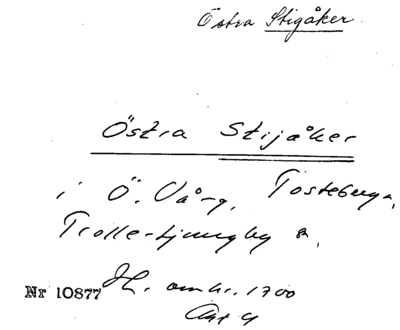 Östra Stigåker
Östra Stijåker
i Ö. Vång, Tosteberga,
Trolle-Ljungby s,
Nr 10877 omkr. 1700
Akt 4